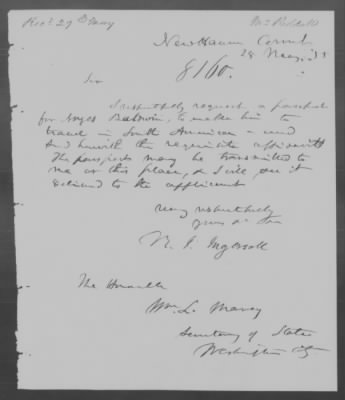 Recd 29th May
Mr Reddall
New Haven Connt
28 May, 55
8160.
Sir
I respectfully request a passport
for Noyes Baldwin, to enable him to
travel in South American - and
send herewith the requisite affidavit
The passport may be transmitted to
me at this place, & I will see it
delivered to the applicant
very respectfully
yours &c
R. I. Ingersoll
The Honorable
Wm. L. Marcy
Secretary of State
Washington City